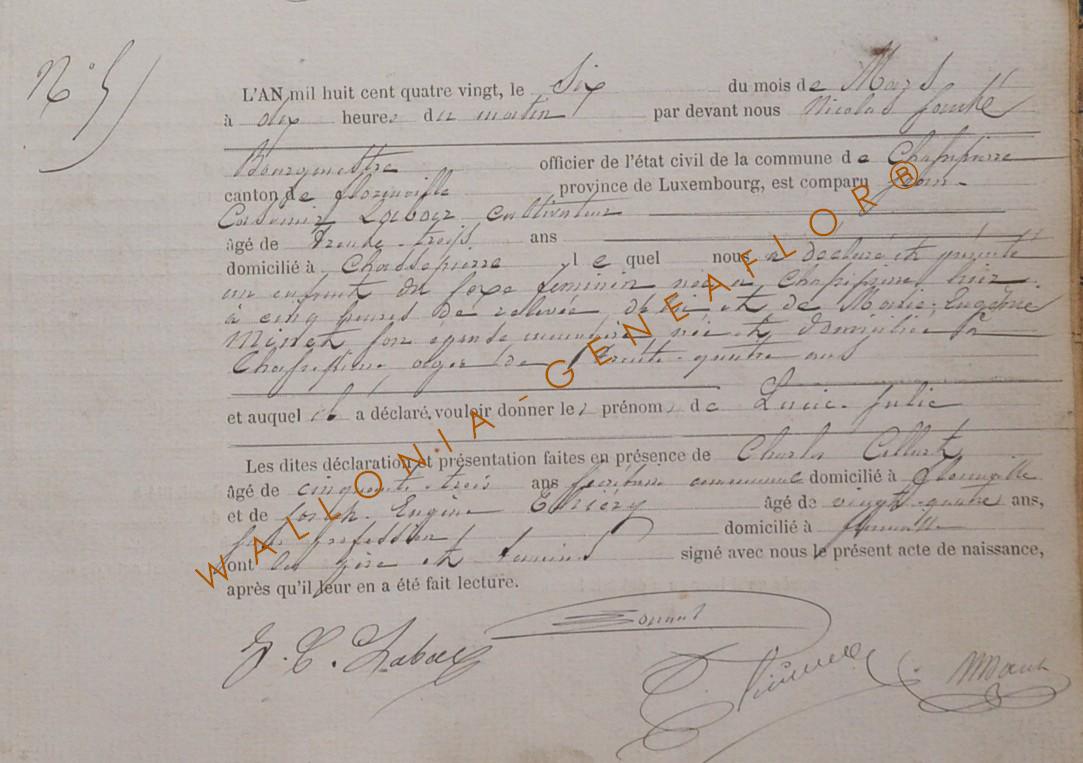 N° 5
L'AN mil huit cent quatre vingt, le six du mois de Mars
à dix heures du matin par devant nous Nicolas
Bourgmestre officier de l'état civil de la commune de Chassepierre
canton de florenville province de Luxembourg, est comparu Jean-
Casimir cultivateur
âgé de trente-trois ans
domicilié à Chassepierre lequel nous a déclaré et présenté
un enfant du sexe féminin née à Chassepierre hier
à cinq heures de relevée, de lui et de Marie-Eugénie
son épouse née et domiciliée à
Chassepierre agée de trente-quatre ans
et auquel il a déclaré, vouloir donner les prénoms de Lucie-Julie
Les dites déclaration et présentation faites en présence de Charles
âgé de cinquante-trois ans secrétaire communal domicilié à florenville
et de Joseph Eugène Thiéry âgé de vingt-quatre ans,
sans profession domicilié à florenville
ont les père et témoins signé avec nous le présent acte de naissance,
après qu'il leur en a été fait lecture.
WALLONIA-GENEAFLOR®